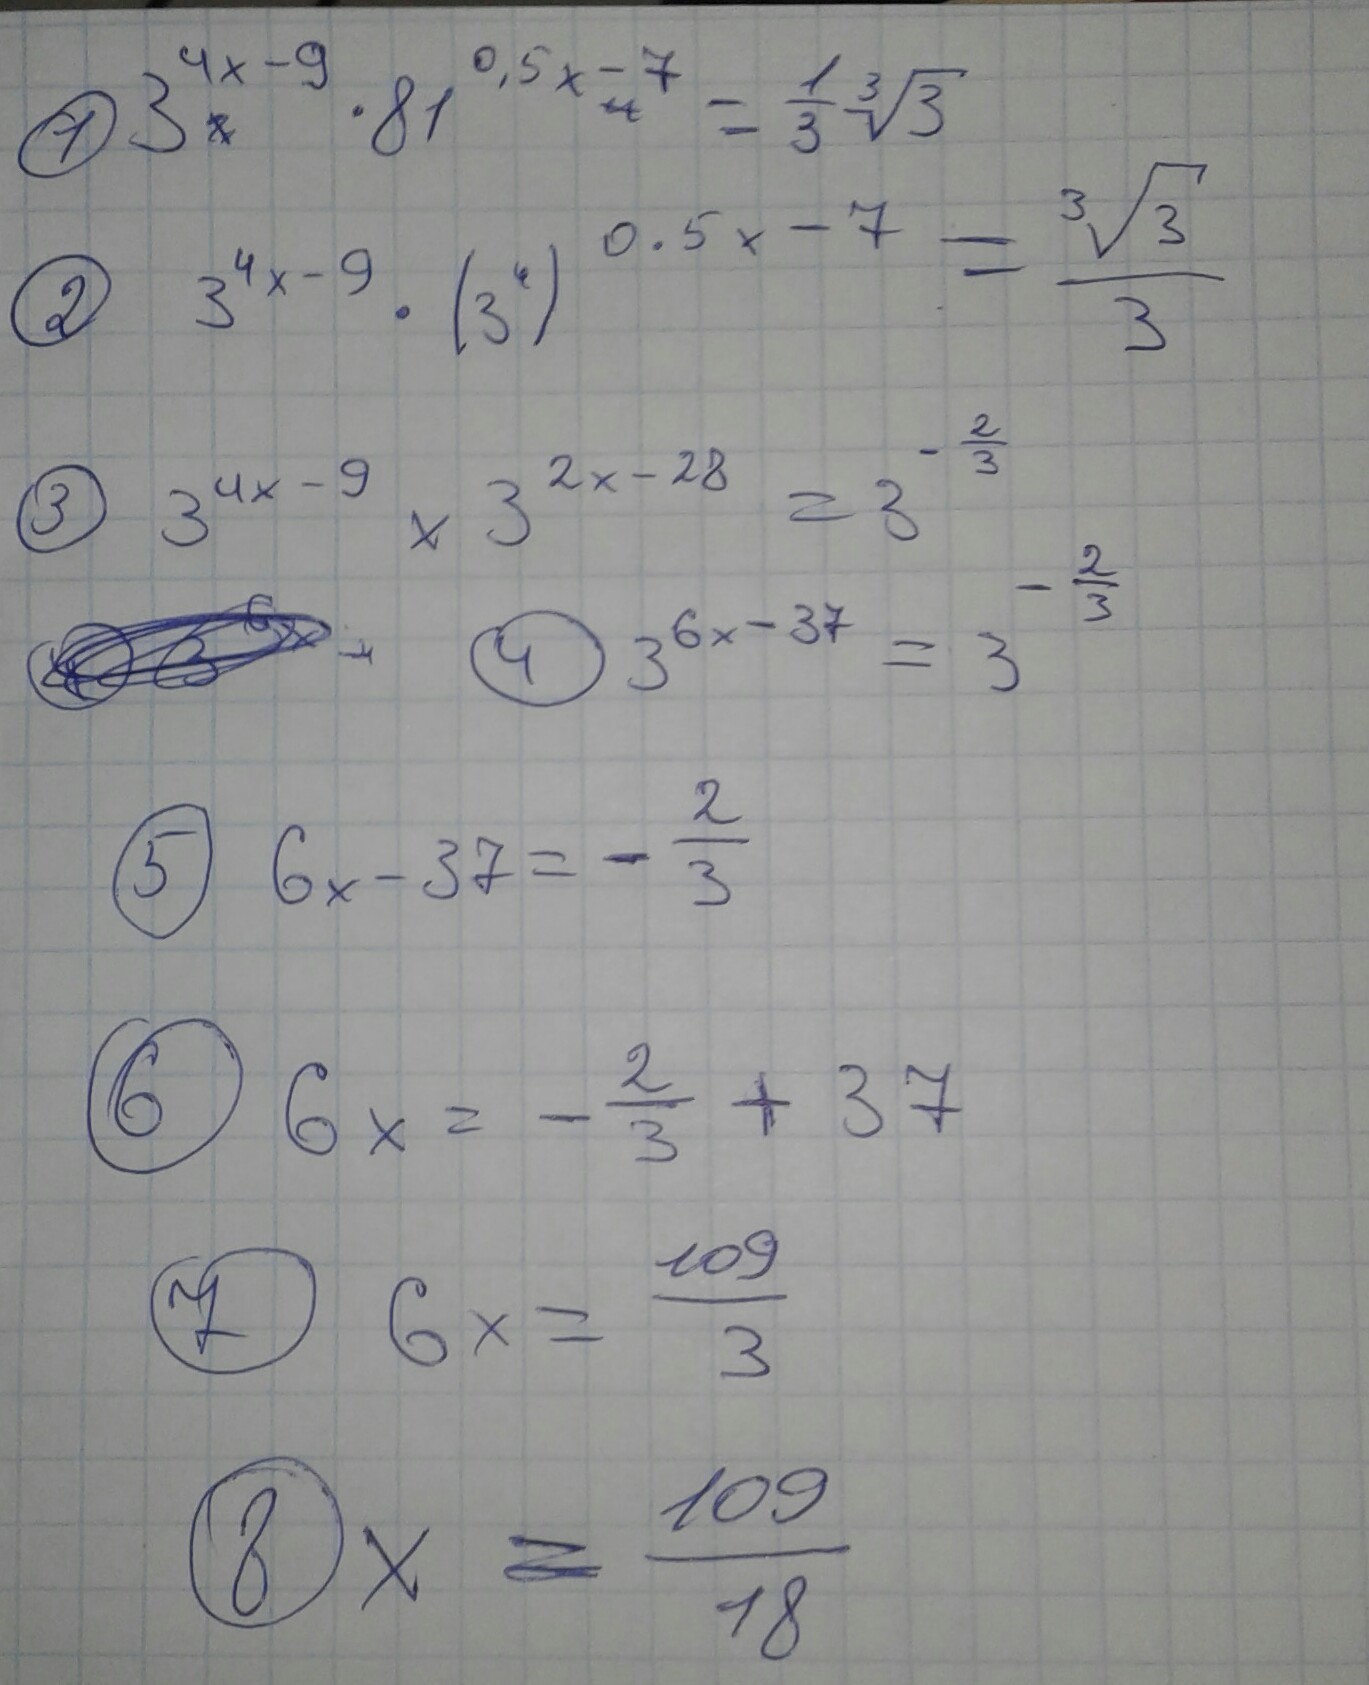 ① 3^{4x-9} · 81^{0,5x-7} = \frac{1}{3} \sqrt[3]{3}
② 3^{4x-9} · (3^4)^{0.5x-7} = \frac{\sqrt[3]{3}}{3}
③ 3^{4x-9} × 3^{2x-28} = 3^{-\frac{2}{3}}
④ 3^{6x-37} = 3^{-\frac{2}{3}}
⑤ 6x-37 = -\frac{2}{3}
⑥ 6x = -\frac{2}{3} + 37
⑦ 6x = \frac{109}{3}
⑧ x = \frac{109}{18}